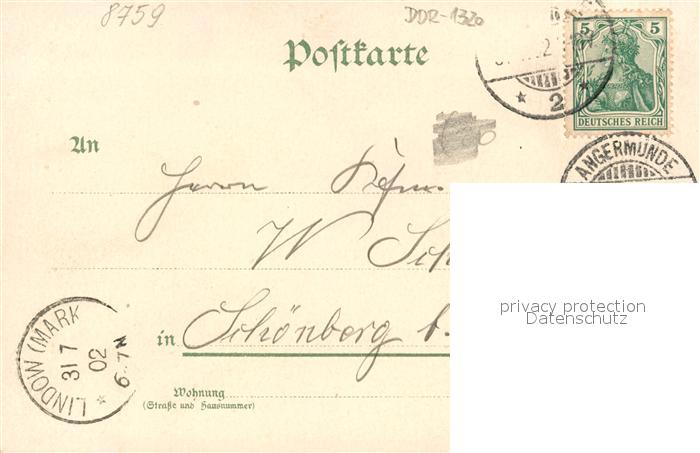 8759
DDR-1320
Postkarte
5 5
DEUTSCHES REICH
2
ANGERMÜNDE
An
Herrn
W Sch
in Schönberg b.
Wohnung
(Straße und Hausnummer)
LINDOW (MARK
31 7
02
6-7N
privacy protection
Datenschutz